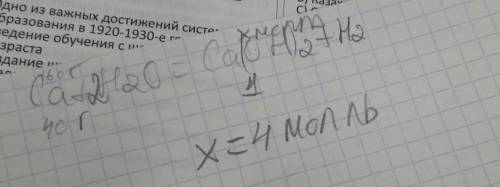 дно из важных достижений систе
бразования в 1920-1930-е г
ведение обучения с
зраста
здание
160 г
x моль
Ca+2H2O = Ca(OH)2+H2
40 г
1
x=4 молль